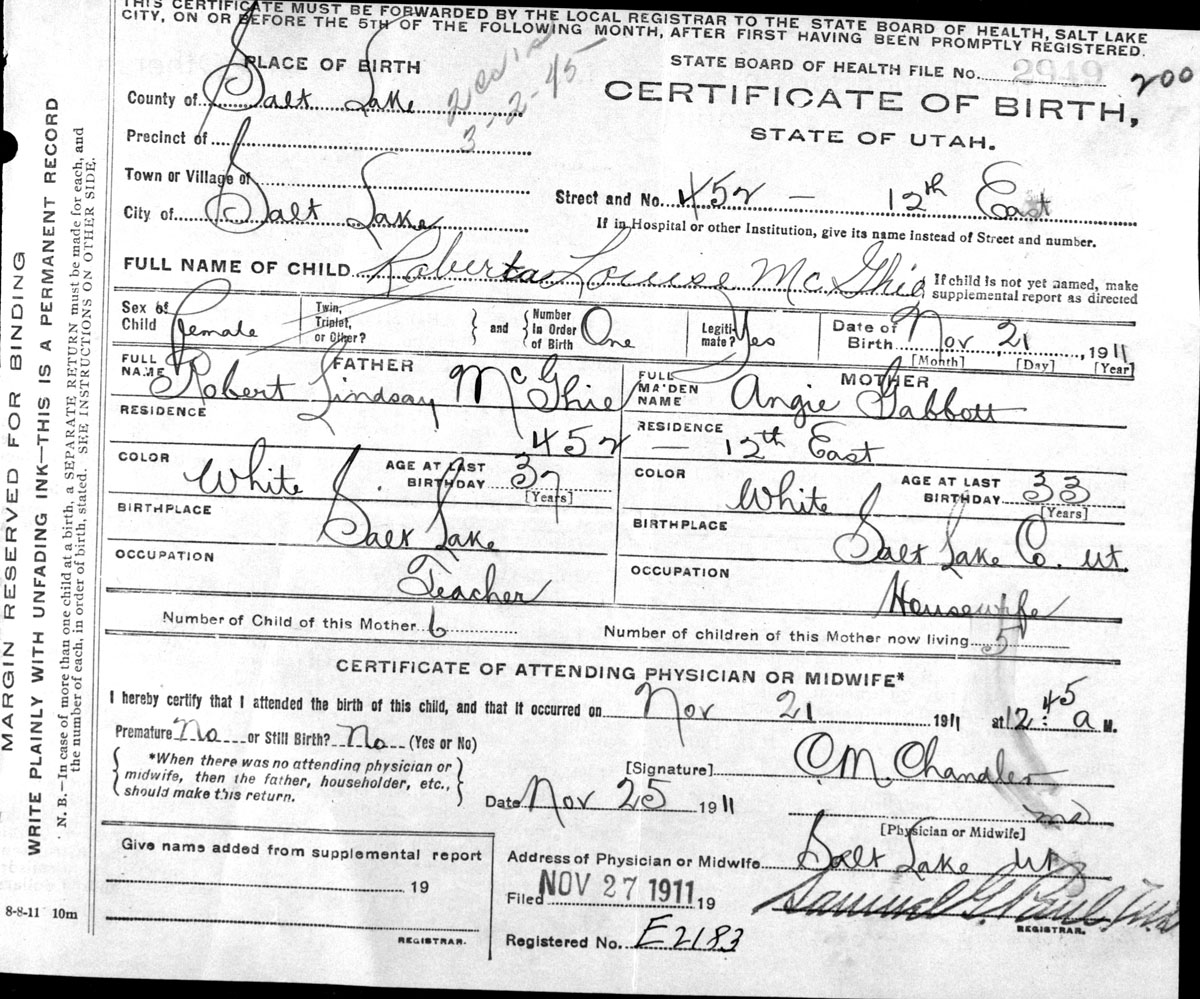 THIS CERTIFICATE MUST BE FORWARDED BY THE LOCAL REGISTRAR TO THE STATE BOARD OF HEALTH, SALT LAKE
CITY, ON OR BEFORE THE 5TH OF THE FOLLOWING MONTH, AFTER FIRST HAVING BEEN PROMPTLY REGISTERED.
PLACE OF BIRTH
STATE BOARD OF HEALTH FILE No. 2949 200
County of Salt Lake
3-2-45
CERTIFICATE OF BIRTH,
STATE OF UTAH.
Precinct of
Town or Village of
Street and No. 452 — 12th East
City of Salt Lake
If in Hospital or other Institution, give its name instead of Street and number.
FULL NAME OF CHILD Roberta Louise McGhie
If child is not yet named, make
supplemental report as directed
Sex of
Child Female
Twin,
Triplet,
or Other?
and
Number
In Order
of Birth One
Legiti-
mate? Yes
Date of
Birth Nov 21, 1911
[Month] [Day] [Year]
FATHER
FULL
NAME Robert Lindsay McGhie
MOTHER
FULL
MAIDEN
NAME Angie Gabbott
RESIDENCE
RESIDENCE
452 — 12th East
COLOR White
AGE AT LAST
BIRTHDAY 37
[Years]
COLOR White
AGE AT LAST
BIRTHDAY 33
[Years]
BIRTHPLACE
Salt Lake
BIRTHPLACE
Salt Lake Co. Ut.
OCCUPATION
Teacher
OCCUPATION
Housewife
Number of Child of this Mother 6
Number of children of this Mother now living 5
CERTIFICATE OF ATTENDING PHYSICIAN OR MIDWIFE*
I hereby certify that I attended the birth of this child, and that it occurred on Nov 21 1911 at 12:45 a M.
Premature No or Still Birth? No (Yes or No)
*When there was no attending physician or
midwife, then the father, householder, etc.,
should make this return.
[Signature] O.M. Chandler
Date Nov 25 1911
MD
[Physician or Midwife]
Give name added from supplemental report
19
REGISTRAR.
Address of Physician or Midwife Salt Lake Ut
Filed NOV 27 1911 19
Samuel G. Paul M.D.
REGISTRAR.
Registered No. E2183
8-8-11 10m
MARGIN RESERVED FOR BINDING
WRITE PLAINLY WITH UNFADING INK—THIS IS A PERMANENT RECORD
N. B.—In case of more than one child at a birth, a SEPARATE RETURN must be made for each, and
the number of each, in order of birth, stated. SEE INSTRUCTIONS ON OTHER SIDE.